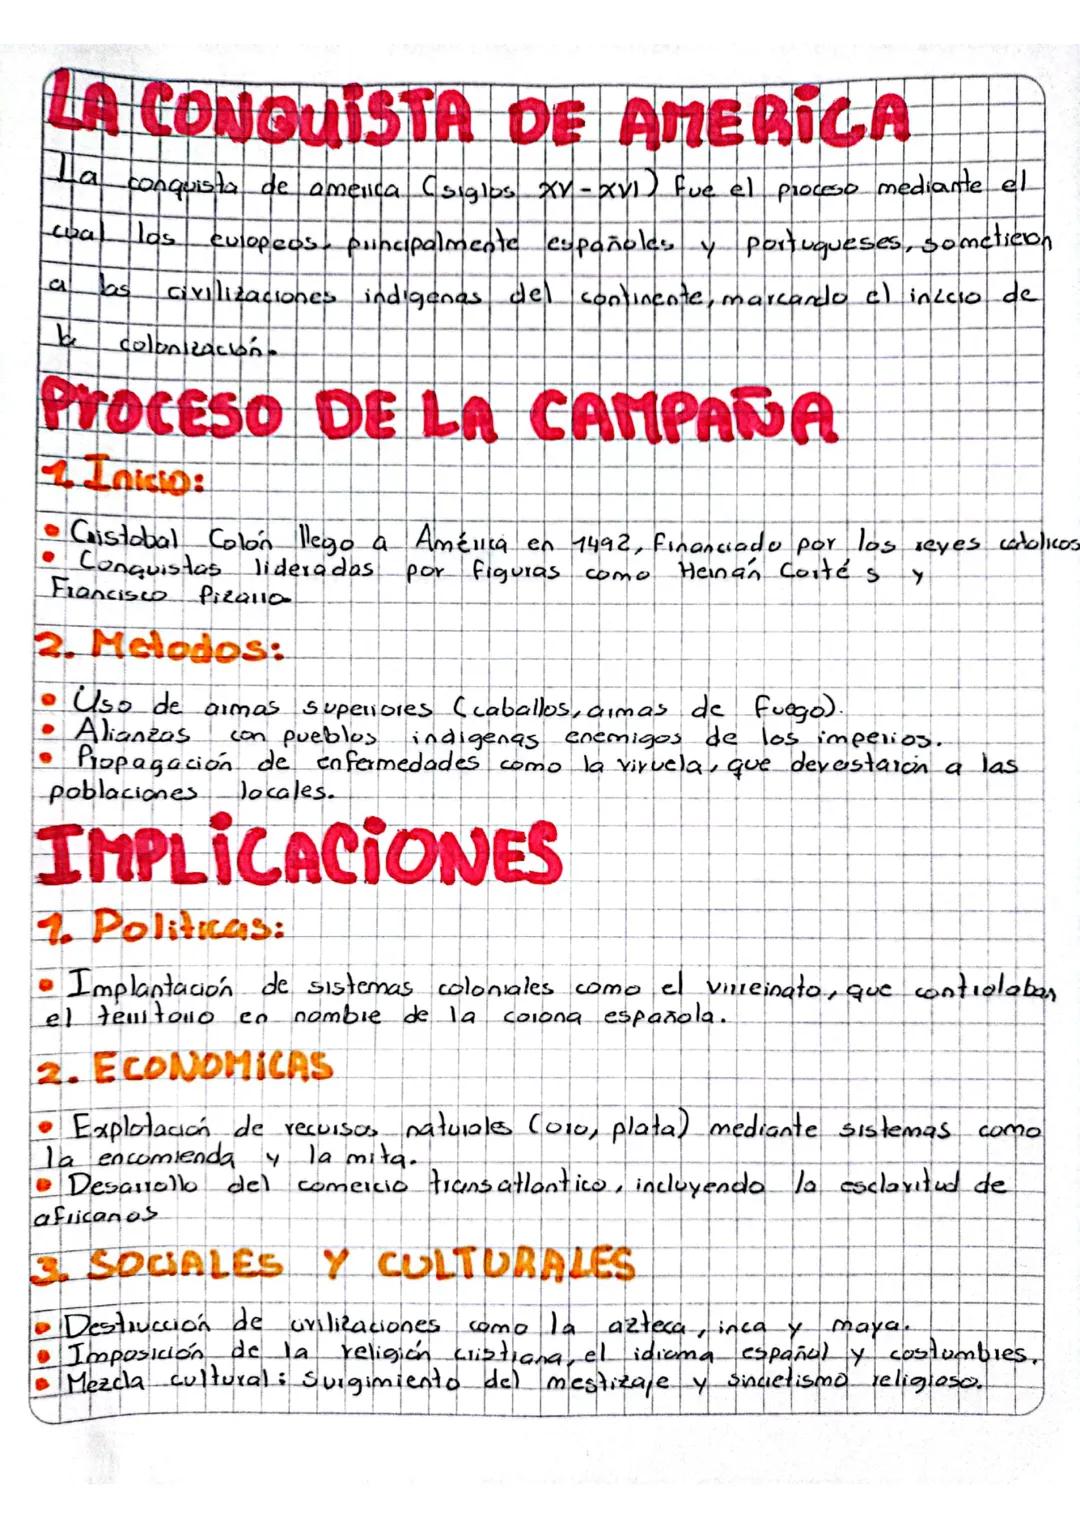 LA CONQUISTA DE AMERICA
La conquista de america (siglos XV-XVI) fue el proceso mediante el
cual los europeos, principalmente españoles y portugueses, sometieron
a las civilizaciones indígenas del continente, marcando el inicio de
la colonización.
PROCESO DE LA CAMPAÑA
1. Inicio:
• Cristobal Colón llego a América en 1492, financiado por los reyes catolicos
• Conquistas lideradas por figuras como Hernán Cortés y
Francisco Pizarro
2. Metodos:
• Uso de armas superiores (caballos, armas de fuego).
• Alianzas con pueblos indigenas enemigos de los imperios.
• Propagación de enfermedades como la viruela, que devastaron a las
poblaciones locales.
IMPLICACIONES
1. Politicas:
• Implantación de sistemas coloniales como el virreinato, que controlaban
el territorio en nombre de la corona española.
2. ECONOMICAS
• Explotación de recursos naturales (oro, plata) mediante sistemas como
la encomienda y la mita.
• Desarrollo del comercio transatlantico, incluyendo la esclavitud de
africanos
3. SOCIALES Y CULTURALES
• Destrucción de civilizaciones como la azteca, inca y maya.
• Imposición de la religión cristiana, el idioma español y costumbres.
• Mezcla cultural: Surgimiento del mestizaje y sincretismo religioso.